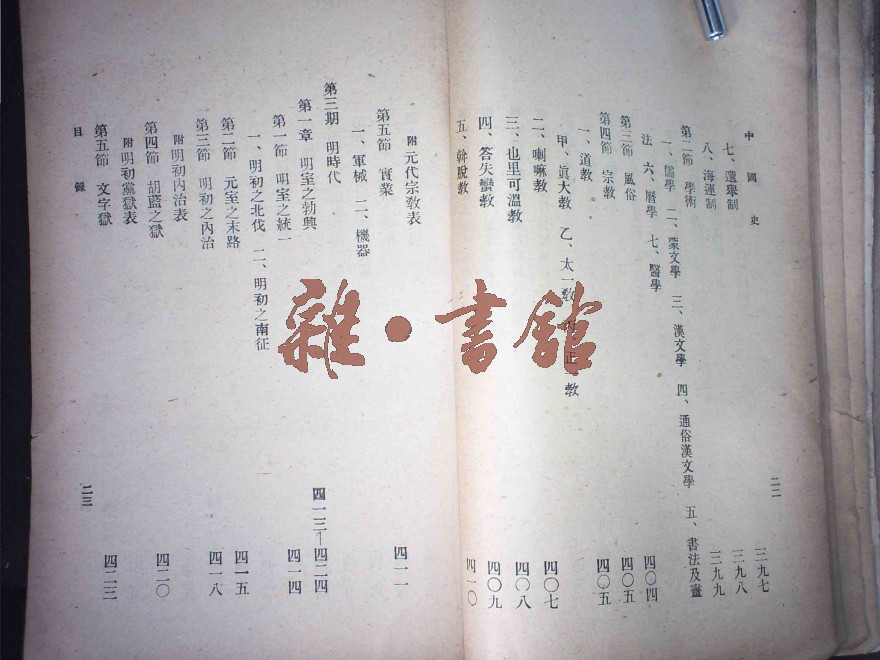 中國史 二二
七、選舉制 三九七
八、海運制 三九八
第二節 學術 三九九
一、儒學 二、蒙文學 三、漢文學 四、通俗漢文學 五、書法及畫
法 六、曆學 七、醫學
第三節 風俗 四〇四
第四節 宗教 四〇五
一、道教 四〇五
甲、眞大教 乙、太一教 正教
二、喇嘛教 四〇七
三、也里可溫教 四〇八
四、答失蠻教 四〇九
五、斡脫教 四一〇
附 元代宗教表
第五節 實業 四一一
一、軍械 二、機器
第三期 明時代
第一章 明室之勃興 四一三—四二四
第一節 明室之統一 四一四
一、明初之北伐 二、明初之南征
第二節 元室之末路 四一五
第三節 明初之內治 四一八
附 明初內治表
第四節 胡藍之獄 四二〇
附 明初黨獄表
第五節 文字獄 四二三
目錄 二三
雜·書館